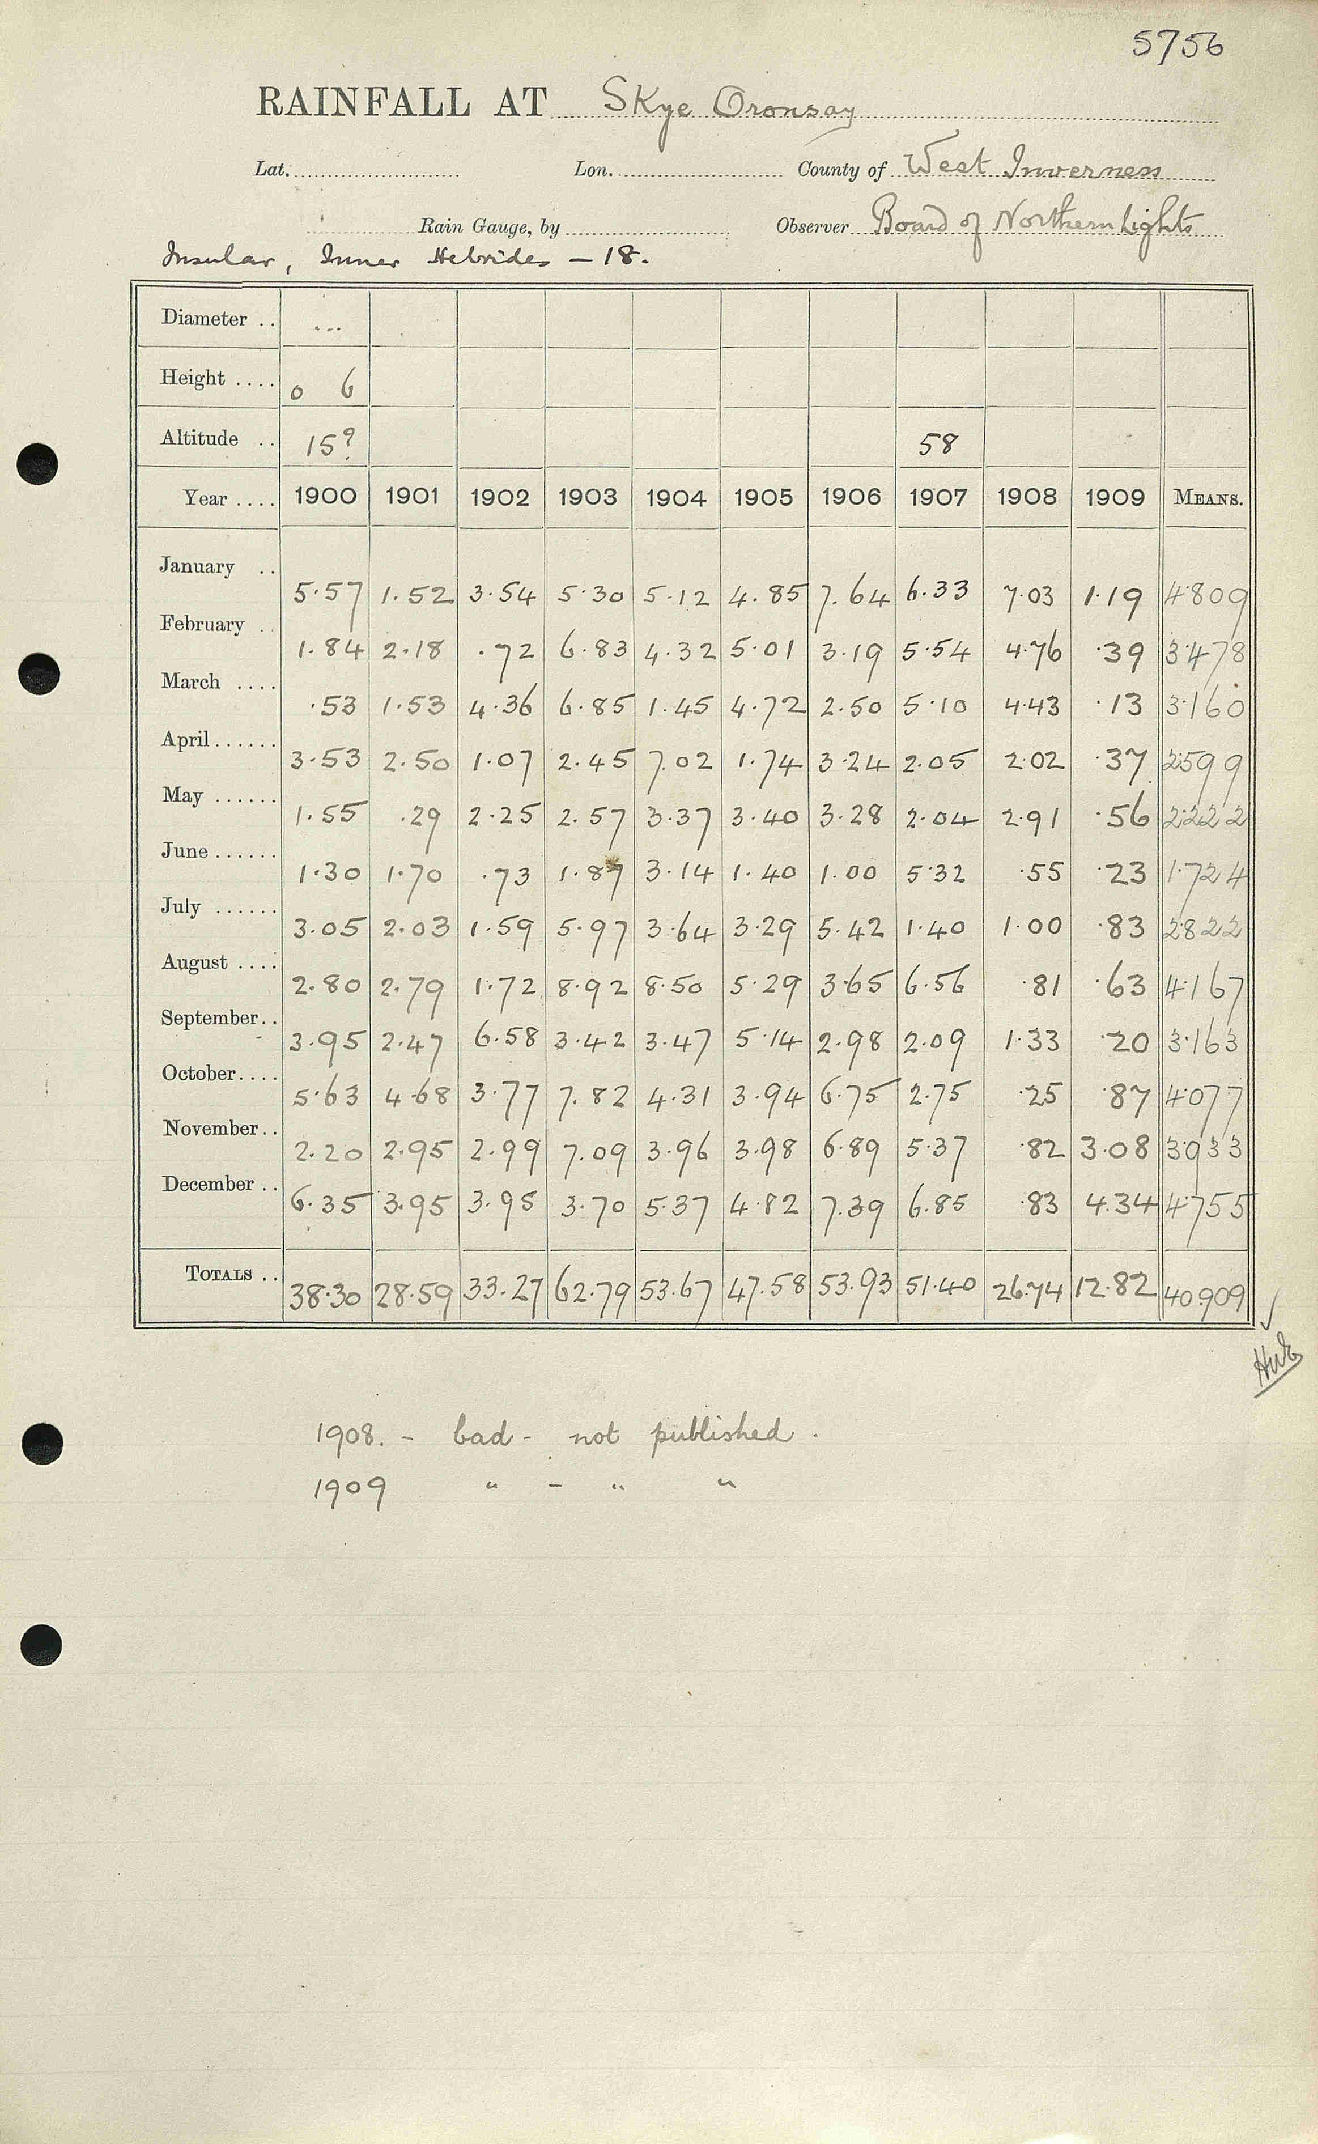 5756
RAINFALL AT Skye Oronsay
Lat. Lon. County of West Inverness
Rain Gauge, by Observer Board of Northern Lights
Insular, Inner Hebrides – 18.
Diameter .. ...
Height .... 0 6
Altitude .. 15? 58
Year .... 1900 1901 1902 1903 1904 1905 1906 1907 1908 1909 MEANS.
January .. 5.57 1.52 3.54 5.30 5.12 4.85 7.64 6.33 7.03 1.19 4.809
February .. 1.84 2.18 .72 6.83 4.32 5.01 3.19 5.54 4.76 .39 3.478
March .... .53 1.53 4.36 6.85 1.45 4.72 2.50 5.10 4.43 .13 3.160
April...... 3.53 2.50 1.07 2.45 7.02 1.74 3.24 2.05 2.02 .37 2599
May ...... 1.55 .29 2.25 2.57 3.37 3.40 3.28 2.04 2.91 .56 2.222
June...... 1.30 1.70 .73 1.87 3.14 1.40 1.00 5.32 .55 .23 1.724
July ...... 3.05 2.03 1.59 5.97 3.64 3.29 5.42 1.40 1.00 .83 2822
August .... 2.80 2.79 1.72 8.92 8.50 5.29 3.65 6.56 .81 .63 4.167
September.. 3.95 2.47 6.58 3.42 3.47 5.14 2.98 2.09 1.33 .20 3.163
October.... 5.63 4.68 3.77 7.82 4.31 3.94 6.75 2.75 .25 .87 4.077
November.. 2.20 2.95 2.99 7.09 3.96 3.98 6.89 5.37 .82 3.08 3933
December .. 6.35 3.95 3.95 3.70 5.37 4.82 7.39 6.85 .83 4.34 4.755
TOTALS .. 38.30 28.59 33.27 62.79 53.67 47.58 53.93 51.40 26.74 12.82 40.909 ✓
1908. - bad - not published.
1909 " - " "